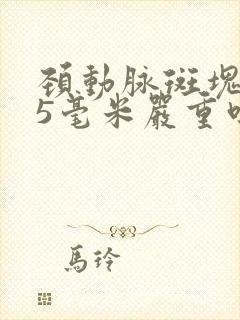 頚動脉斑塊
5毫米嚴重
馬玲